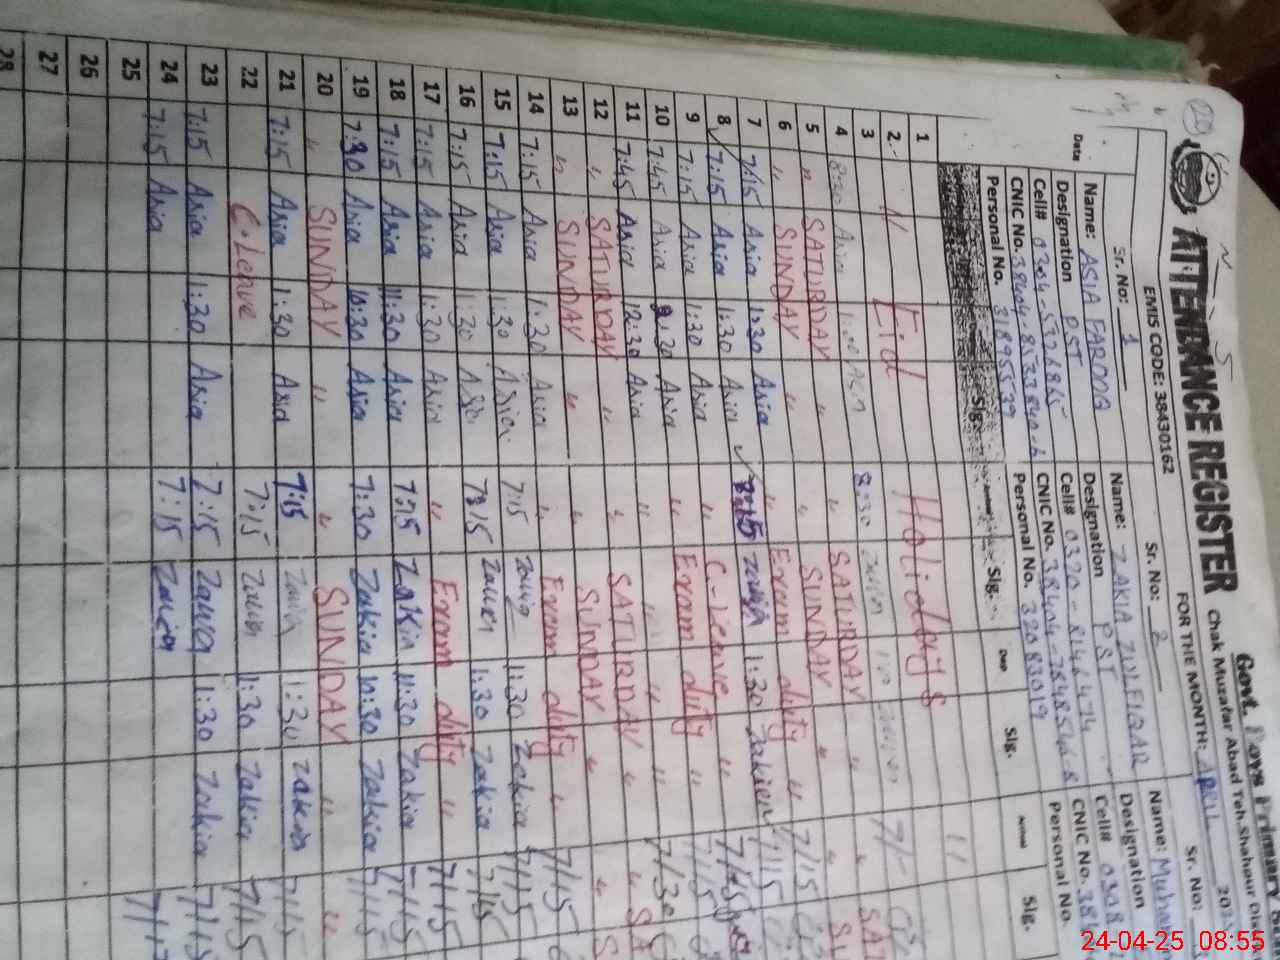 ATTENDANCE REGISTER
Govt. Boys Primary
Chak Muzafar Abad Teh. Shahpur
EMIS CODE: 38430162
FOR THE MONTH: APRIL 202
Sr. No: 1
Sr. No: 2
Sr. No:
Name: ASIA FAROOQ
Name: ZAKIA ZULFIQAR
Name: Muham
Designation PST
Designation PST
Designation
Cell# 0304-5726865
Cell# 0320-8146474
Cell# 0308
CNIC No. 38404-8533840-6
CNIC No. 38404-7848546-8
CNIC No. 38
Personal No. 31895539
Personal No. 32083019
Personal No.
Date
Sig.
Sig.
Dep
Sig.
Arrival
Sig.
1
2 Eid Holidays
3
4 8:30 Asia 1:00 8:30
5 " SATURDAY " " SATURDAY "
6 " SUNDAY " " SUNDAY "
7 7:15 Asia 1:30 Asia " Exam duty " 7/15
8 7:15 Asia 1:30 Asia 8:15 Zakia 1:30 Zakia 7/15
9 7:15 Asia 1:30 Asia " C-Leave " 7/15
10 7:45 Asia 12:30 Asia " Exam duty " 7/15
11 7:45 Asia 12:30 Asia " " " 7/30
12 " SATURDAY " " SATURDAY " "
13 " SUNDAY " " SUNDAY " "
14 7:15 Asia 1:30 Asia " Exam duty " 7/15
15 7:15 Asia 1:30 Asia 7:15 Zakia 1:30 Zakia 7/15
16 7:15 Asia 1:30 Asia 7:15 Zakia 1:30 Zakia 7/15
17 7:15 Asia 1:30 Asia " Exam duty " 7/15
18 7:15 Asia 11:30 Asia 7:15 Zakia 11:30 Zakia 7/15
19 7:30 Asia 10:30 Asia 7:30 Zakia 10:30 Zakia 7/15
20 " SUNDAY " " SUNDAY " "
21 7:15 Asia 1:30 Asia 7:15 Zakia 1:30 Zakia 7/15
22 C-Leave 7:15 Zakia 1:30 Zakia 7/15
23 7:15 Asia 1:30 Asia 7:15 Zakia 1:30 Zakia 7/15
24 7:15 Asia 7:15 Zakia
25
26
27
28
24-04-25 08:55